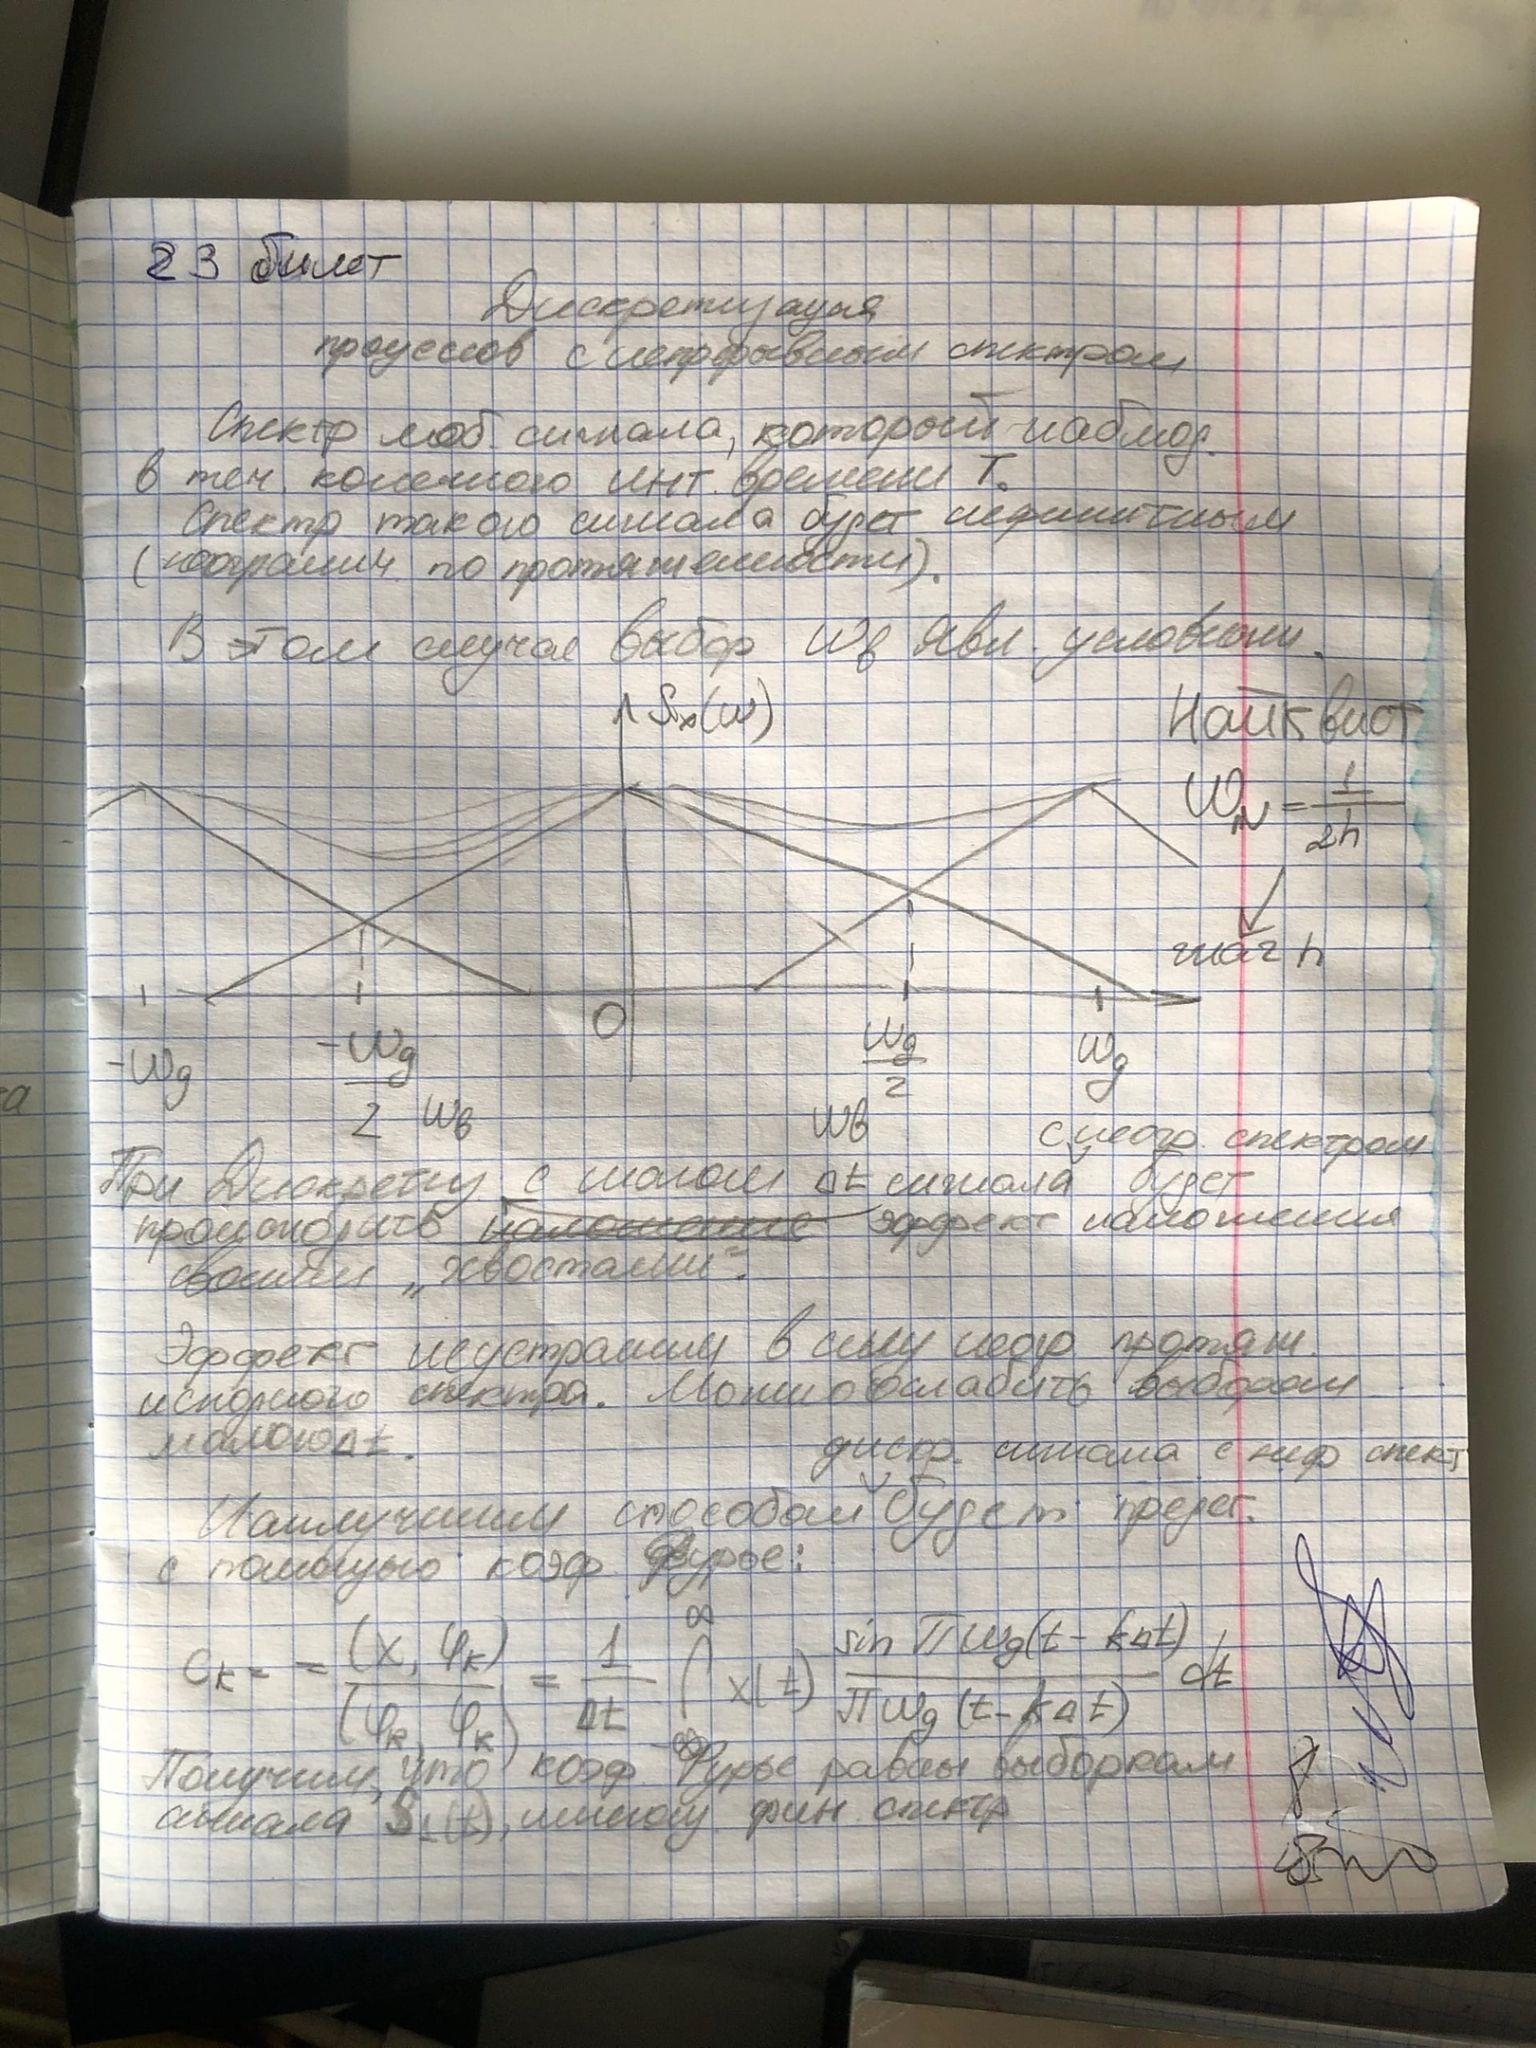 23 билет
Дискретизация
процессов с непрерывным спектром
Спектр люб. сигнала, который наблюд.
в теч. конечного инт. времени T.
Спектр такого сигнала будет нефинитным
(неогранич. по протяженности).
В этом случае выбор ωв явл. условным.
Sx(ω)
Найквист
ωN = 1/2h
шаг h
-ωg
-ωg/2
0
ωg/2
ωg
ωв
ωв
с неогр. спектром
При Дискретиз. с шагом Δt сигнала будет
происходить наложение эффект наложения
своими „хвостами".
Эффект неустраним в силу неогр протяж.
исходного спектра. Можно ослабить выбором
малого Δt.
дискр. сигнала с неф спект
Наилучшим способом будет предст.
с помощью коэф Фурье:
Ck = = (x, φk)/(φk, φk) = 1/Δt ∫_{-∞}^{∞} x(t) sin Пωg(t - kΔt)/Пωg(t - kΔt) dt
Получим, что коэф Фурье равны выборкам
сигнала
фин. спектр